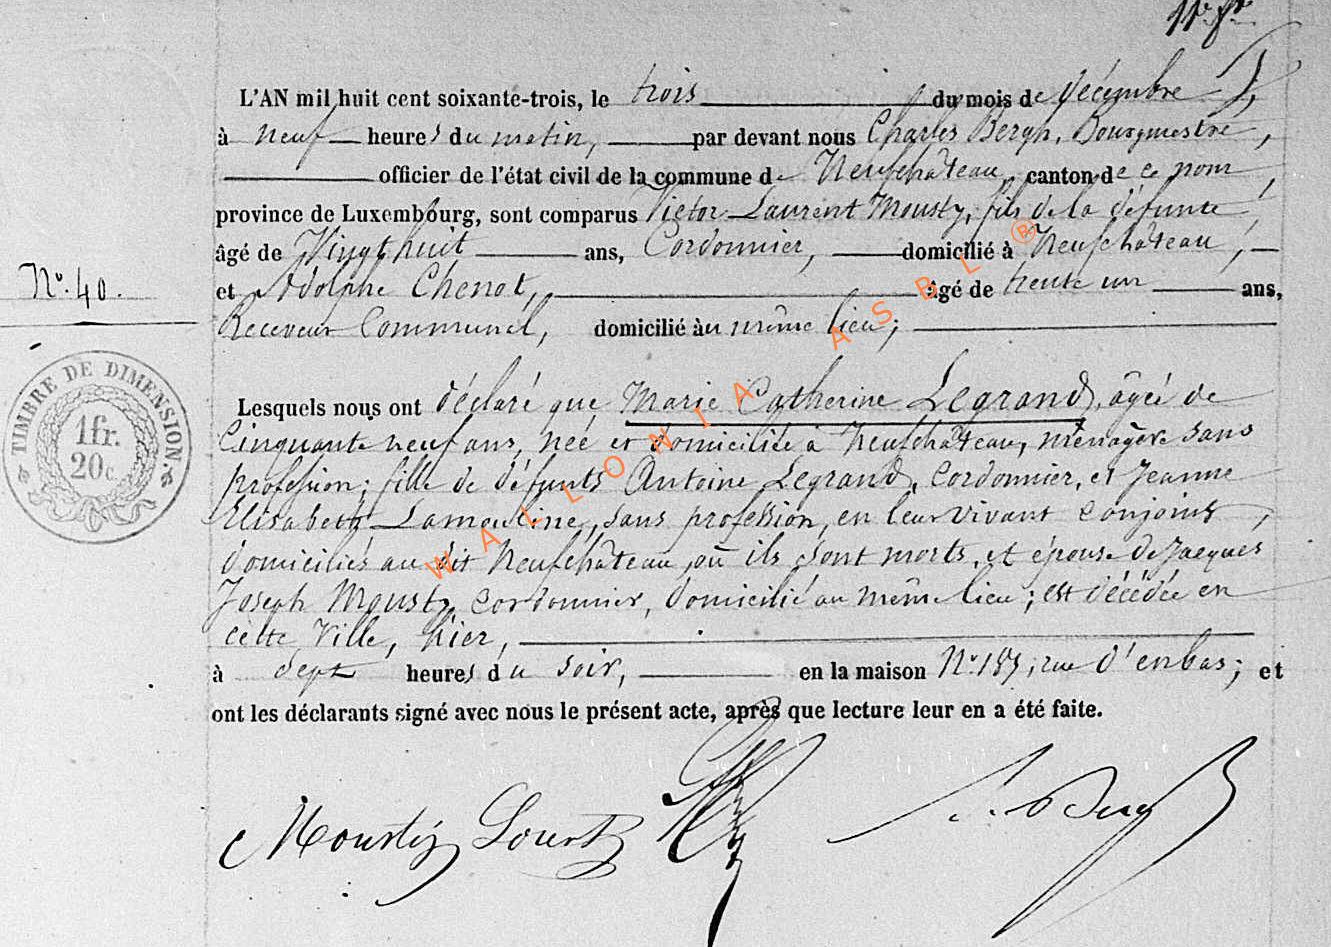 L'AN mil huit cent soixante-trois, le trois du mois de décembre,
à neuf heures du matin, par devant nous Charles Bergh, Bourgmestre,
officier de l'état civil de la commune de Neufchâteau, canton de ce nom,
province de Luxembourg, sont comparus Victor Laurent Mousty, fils de la défunte,
âgé de Vingt huit ans, Cordonnier, domicilié à Neufchâteau,
N°. 40.
et Adolphe Chenot, âgé de trente un ans,
Receveur Communal, domicilié au même lieu;
Lesquels nous ont déclaré que Marie Catherine Legrand, âgée de
Cinquante neuf ans, née et domiciliée à Neufchâteau, ménagère sans
profession; fille de défunts Antoine Legrand, Cordonnier, et Jeanne
Elisabeth Lamouline, sans profession, en leur vivant conjoints,
domiciliés au dit Neufchâteau, où ils sont morts, et épouse de Jacques
Joseph Mousty, Cordonnier, domicilié au même lieu; est décédée en
cette Ville, hier,
à sept heures du soir, en la maison N° rue d'enbas; et
ont les déclarants signé avec nous le présent acte, après que lecture leur en a été faite.
TIMBRE DE DIMENSION.
1fr.
20c.
WALLONIA ASBL ®
Mousty